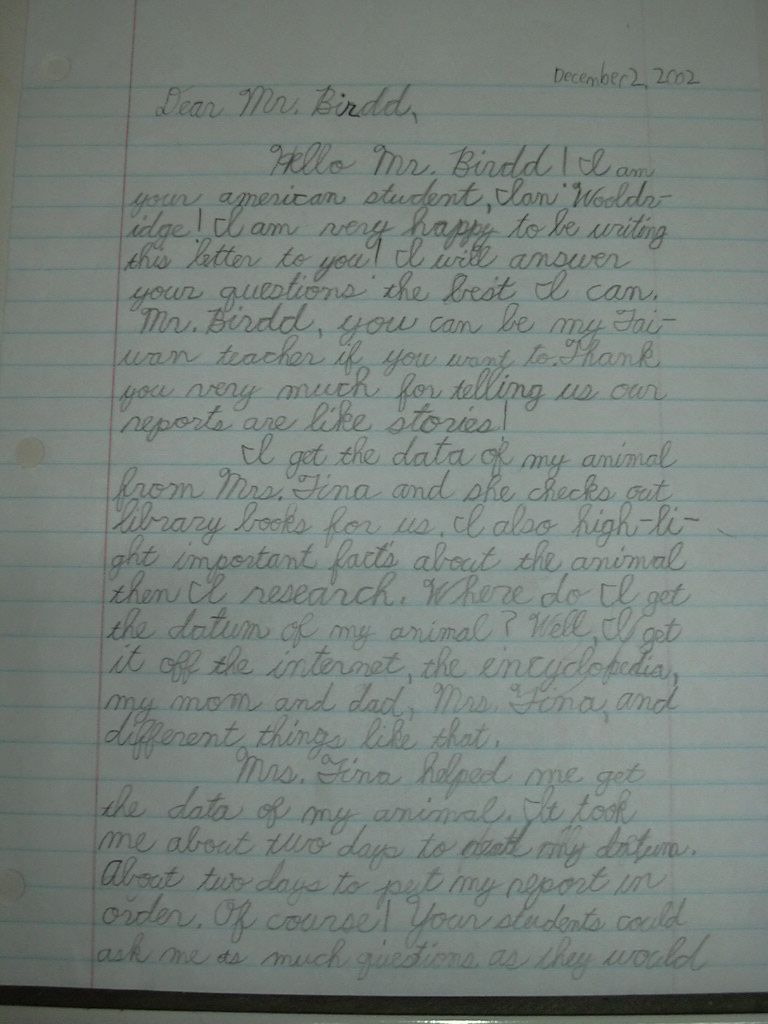 December 2, 2002
Dear Mr. Birdd,
Hello Mr. Birdd! I am
your american student, Ian Wooldr-
idge! I am very happy to be writing
this letter to you! I will answer
your questions the best I can.
Mr. Birdd, you can be my Tai-
wan teacher if you want to. Thank
you very much for telling us our
reports are like stories!
I get the data of my animal
from Mrs. Fina and she checks out
library books for us. I also high-li-
ght important facts about the animal
then I research. Where do I get
the datum of my animal? Well, I get
it off the internet, the encyclopedia,
my mom and dad, Mrs. Fina, and
different things like that.
Mrs. Fina helped me get
the data of my animal. It took
me about two days to my datum.
About two days to put my report in
order. Of course! Your students could
ask me as much questions as they would